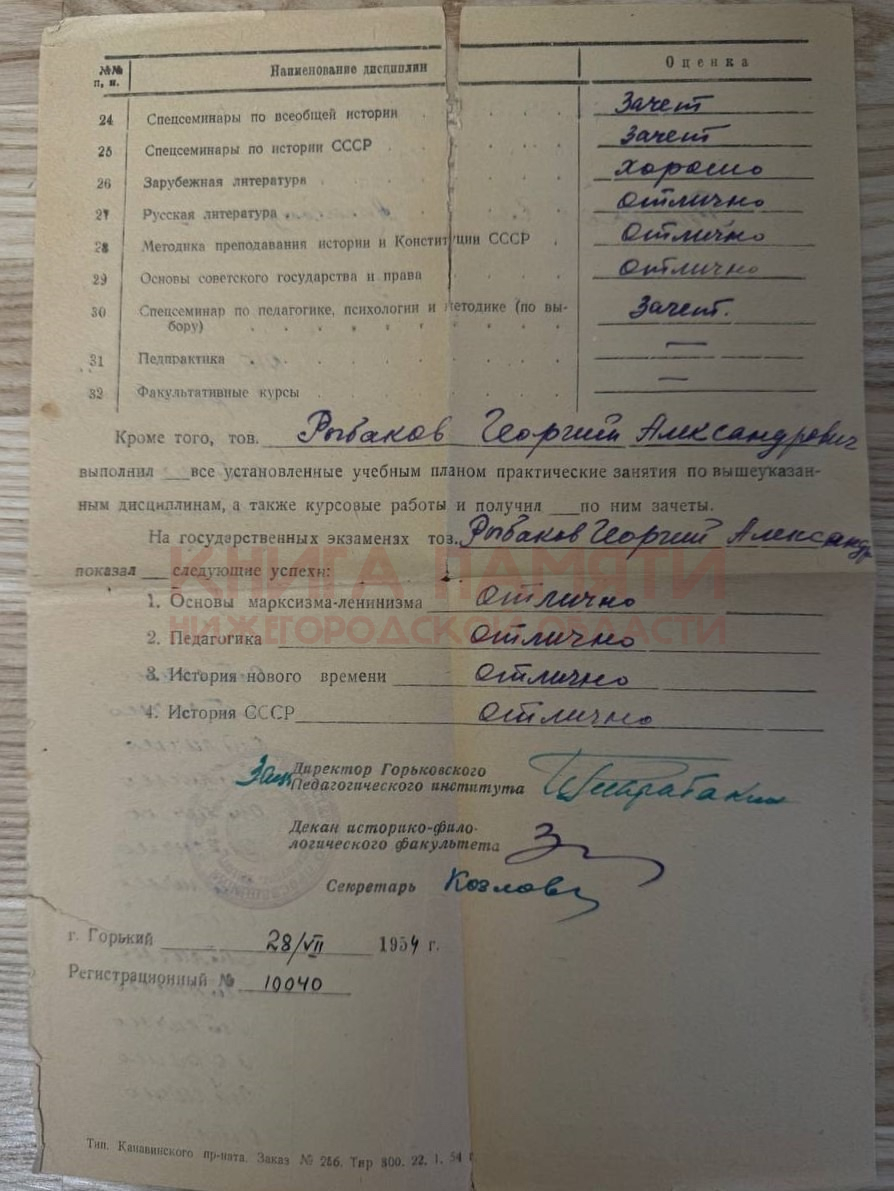 №№ п. п. Наименование дисциплин Оценка
24 Спецсеминары по всеобщей истории Зачет
25 Спецсеминары по истории СССР Зачет
26 Зарубежная литература хорошо
27 Русская литература отлично
28 Методика преподавания истории и Конституции СССР отлично
29 Основы советского государства и права отлично
30 Спецсеминар по педагогике, психологии и методике (по вы-
бору) Зачет.
31 Педпрактика —
32 Факультативные курсы —
Кроме того, тов. Рыбаков Георгий Александрович
выполнил все установленные учебным планом практические занятия по вышеуказан-
ным дисциплинам, а также курсовые работы и получил по ним зачеты.
На государственных экзаменах тов. Рыбаков Георгий Александр
показал следующие успехи:
КНИГА ПАМЯТИ
НИЖЕГОРОДСКОЙ ОБЛАСТИ
1. Основы марксизма-ленинизма отлично
2. Педагогика отлично
3. История нового времени отлично
4. История СССР отлично
Зам Директор Горьковского
Педагогического института
Декан историко-фило-
логического факультета
Секретарь Козлова
г. Горький 28/VII 1954 г.
Регистрационный № 10040
Тип. Канавинского пр-ната. Заказ № 266. Тир 800. 22. 1. 54